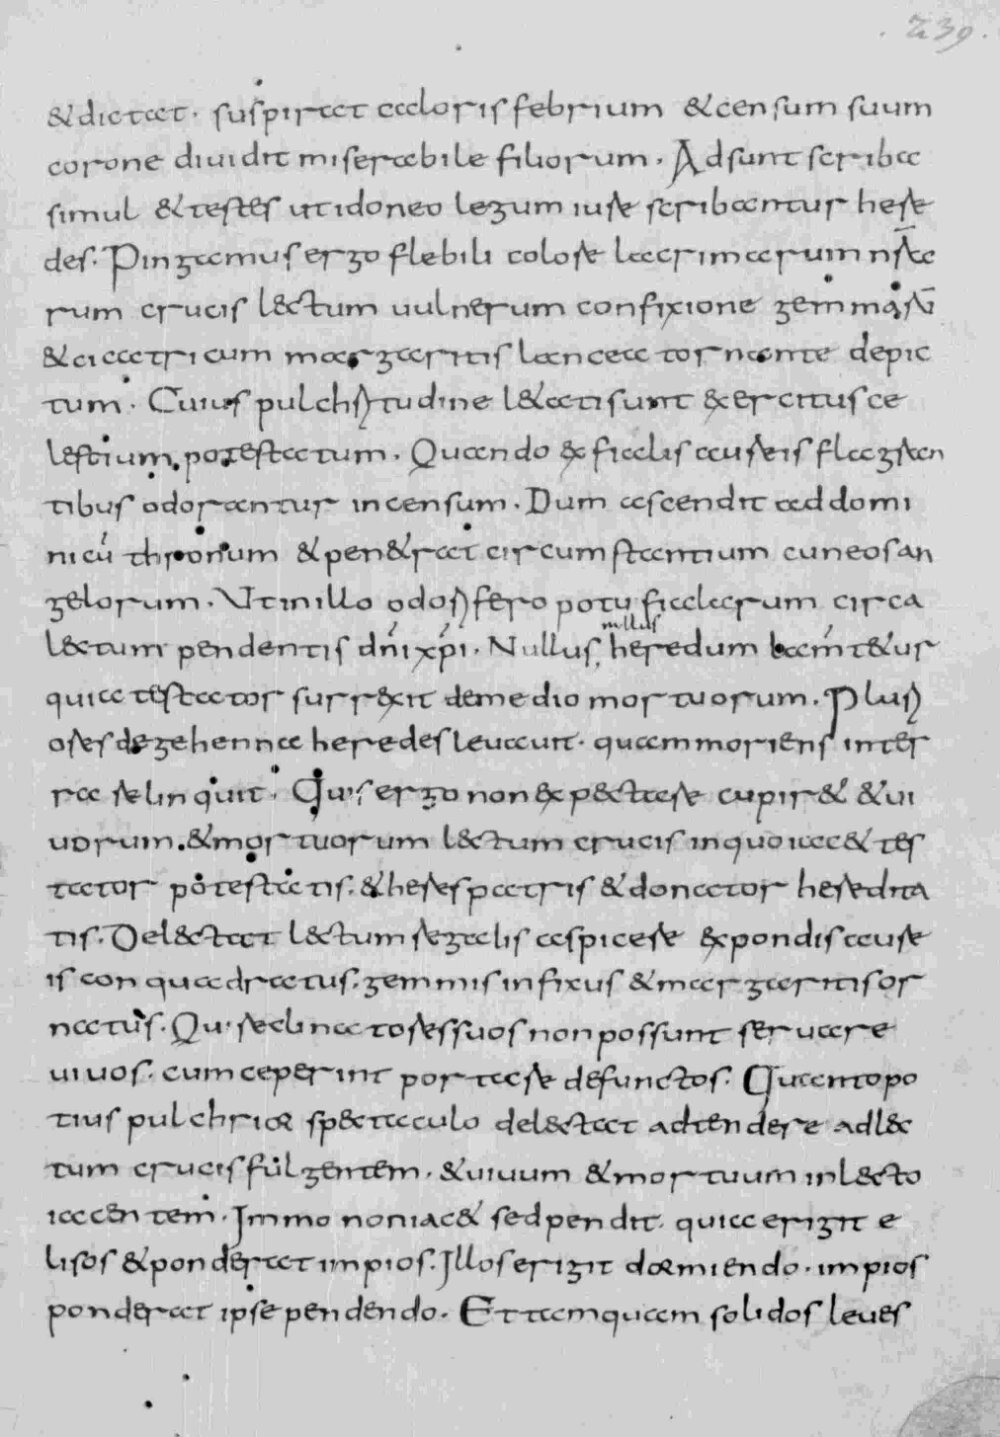 . 239.
& dictat. suspirat caloris febrium & censum suum
corone diuidit miserabile filiorum. Adsunt scribae
simul & testes ut idoneo legum iure scribantur here
des. Pingamus ergo flebili colore lacrimarum nr̄a
rum crucis lectum uulnerum confixione gemmarū
& cicatricum margaritis lancea tornante depic
tum. Cuius pulchritudine letati sunt exercitus ce
lestium potestatum. Quando ex fialis aureis flagran
tibus odorantur incensum. Dum ascendit ad domi
nicū thronum & penetrat circumstantium cuneos an
gelorum. Ut in illo odorifero potu fialarum circa
lectum pendentis dn̄i xp̄i. Nullus heredum
nullus
quia testator surrexit de medio mortuorum. Pluri
ores de gehenna heredes leuauit. quam moriens in ter
ra relinquit. Quis ergo non expectare cupiret & ui
uorum. & mortuorum lectum crucis in quo iacet tes
tator potestatis. & heres patris & donator heredita
tis. Delectat lectum regalis aspicere ex pondis aure
is conquadratus. gemmis infixus & margaritis or
natus. Qui reclinatores suos non possunt seruare
uiuos. cum ceperint portare defunctos. Quanto po
tius pulchriore spectaculo delectat adtendere ad lec
tum crucis fulgentem. & uiuum & mortuum in lecto
iacentem. Immo non iacet sed pendit. quia erigit e
lisos & ponderat impios. Illos erigit dormiendo. impios
ponderat ipse pendendo. Et tamquam solidos leues